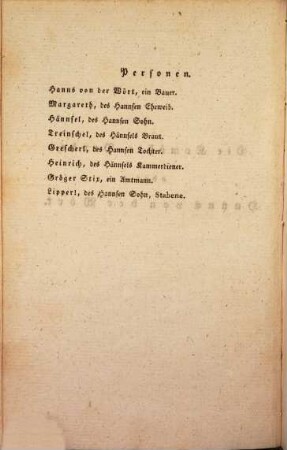 Personen.
Hanns von der Wört, ein Bauer.
Margareth, des Hannsen Eheweib.
Hännsel, des Hannsen Sohn.
Treinschel, des Hännsels Braut.
Grescherl, des Hannsen Tochter.
Heinrich, des Hännsels Kammerdiener.
Gröger Stix, ein Amtmann.
Lipperl, des Hannsen Sohn, Studiosus.